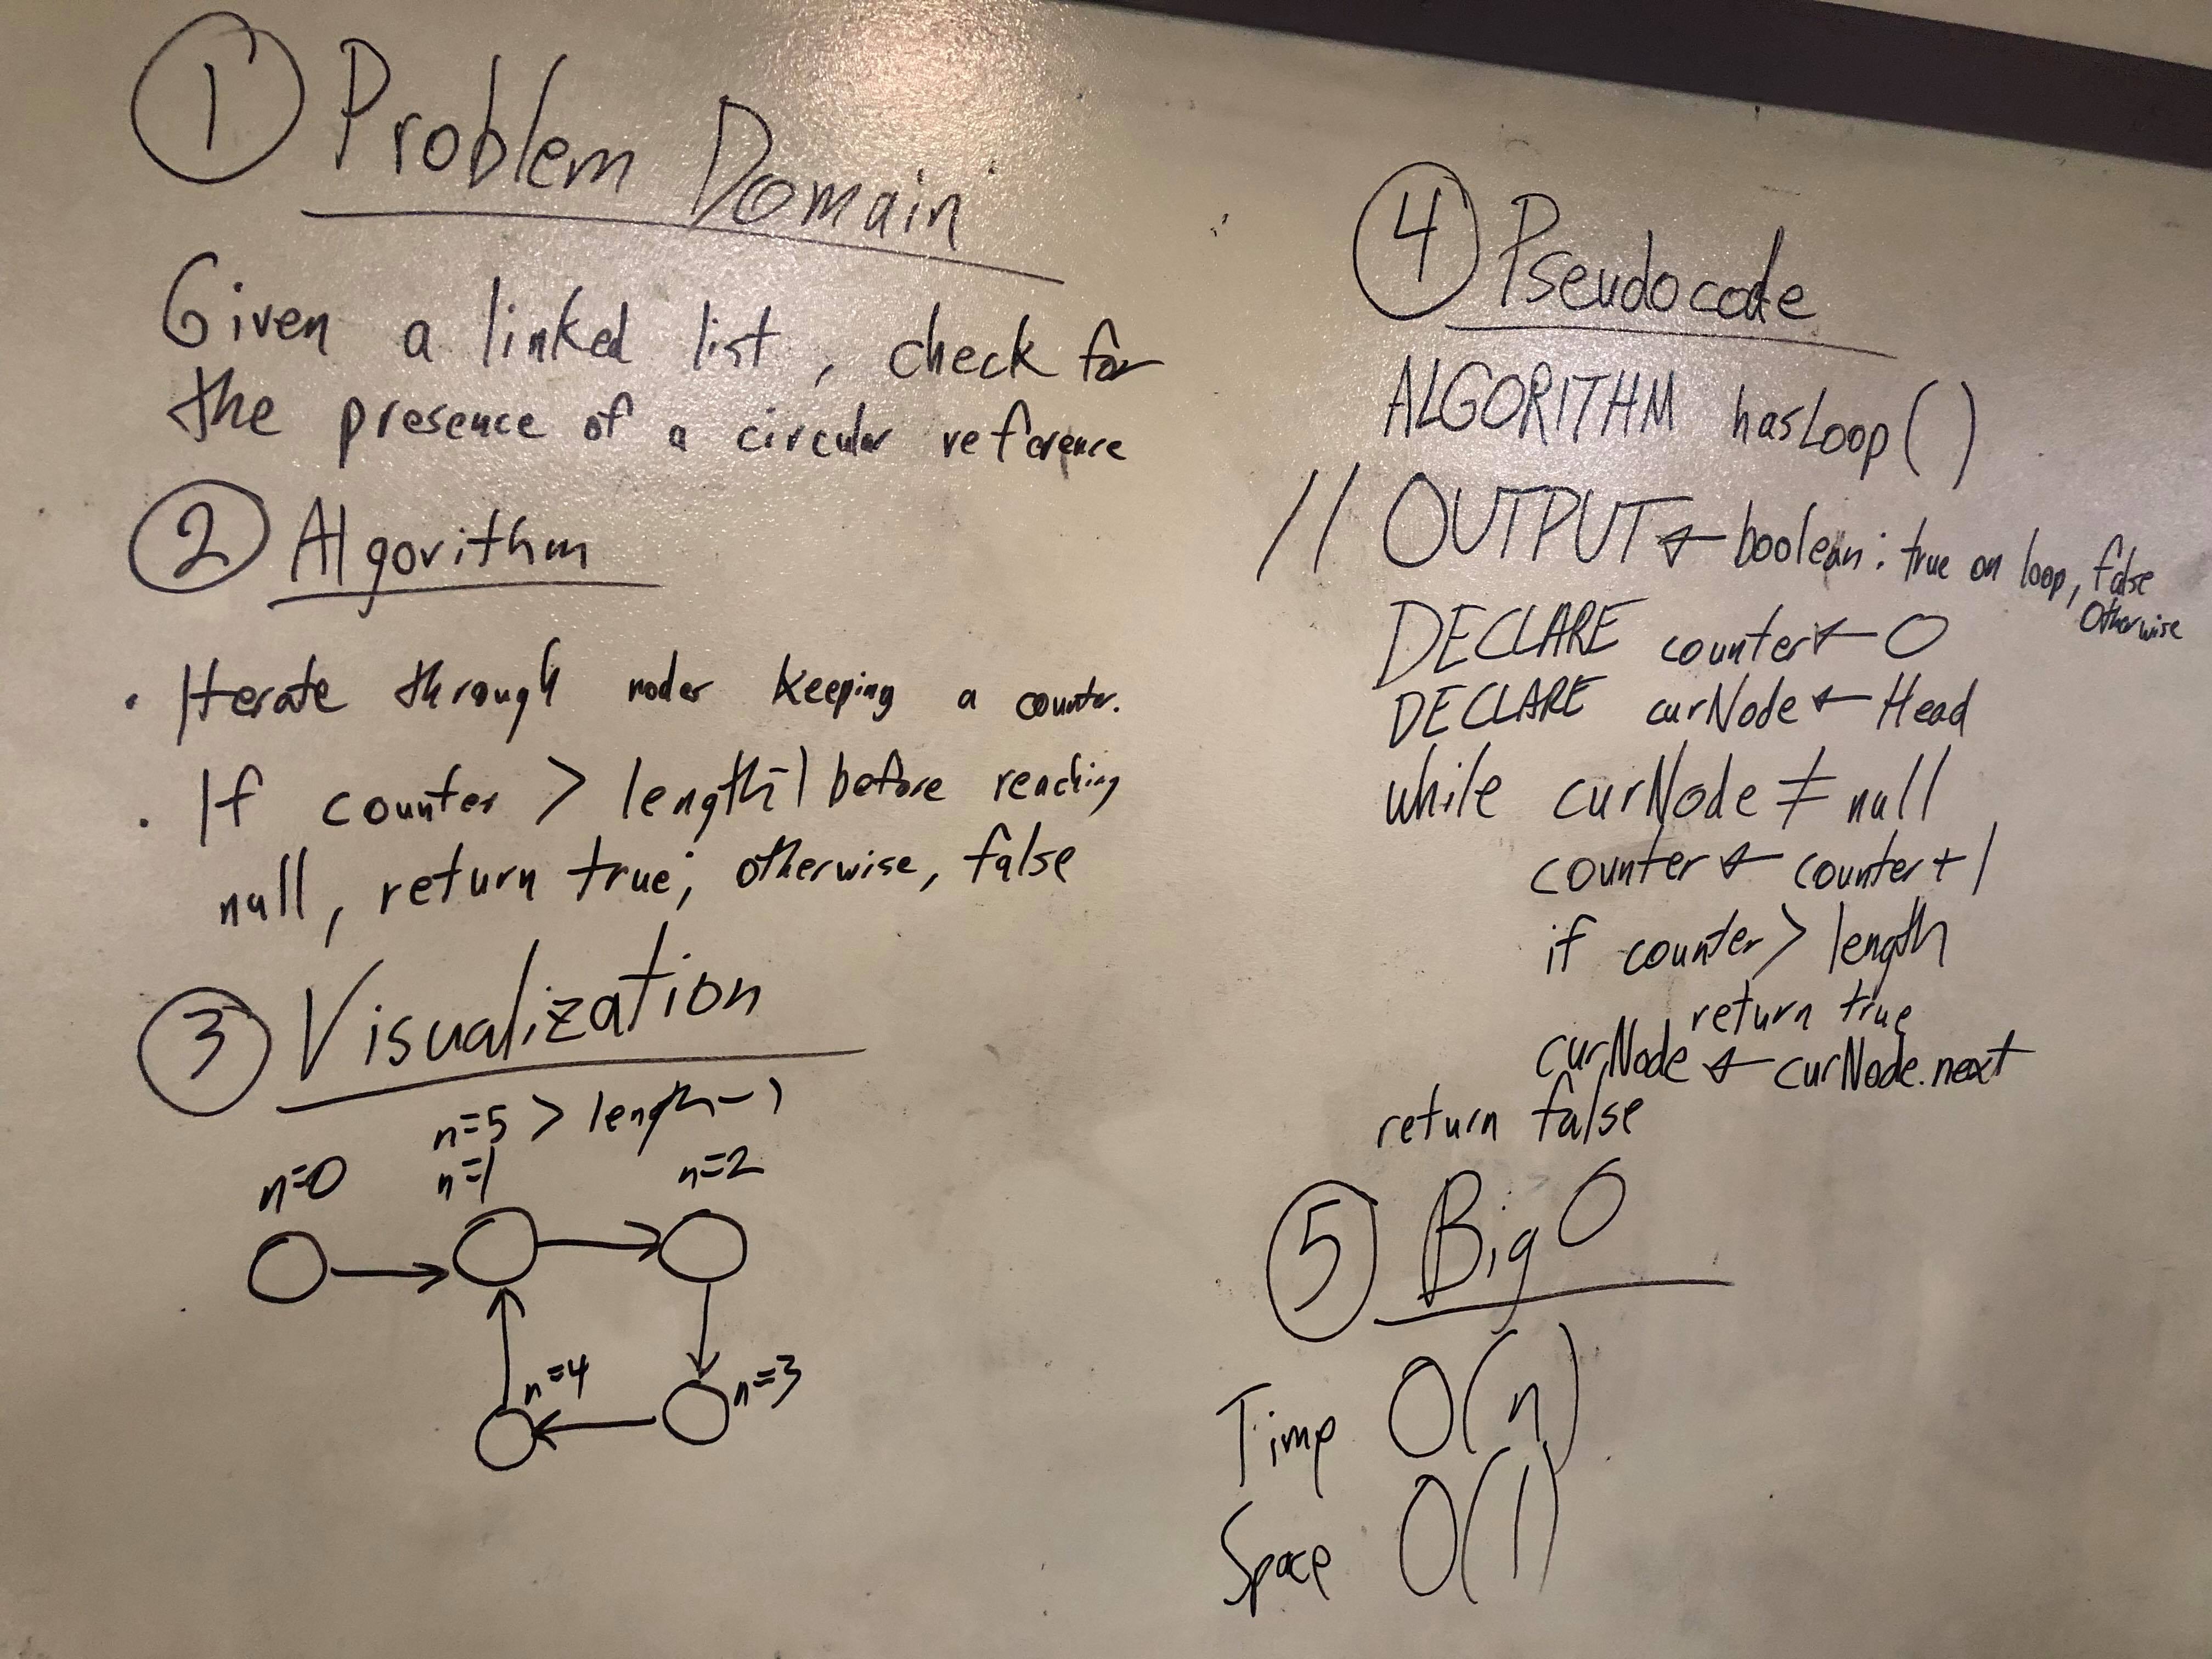 ① Problem Domain
Given a linked list, check for
the presence of a circular reference
② Algorithm
• Iterate through nodes keeping a counter.
• If counter > length-1 before reaching
null, return true; otherwise, false
③ Visualization
n=5 > length-1
n=0 n=1 n=2
n=4 n=3
④ Pseudocode
ALGORITHM hasLoop()
// OUTPUT ← boolean: true on loop, false
otherwise
DECLARE counter ← 0
DECLARE curNode ← Head
while curNode ≠ null
counter ← counter + 1
if counter > length
return true
curNode ← curNode.next
return false
⑤ Big O
Time O(n)
Space O(1)